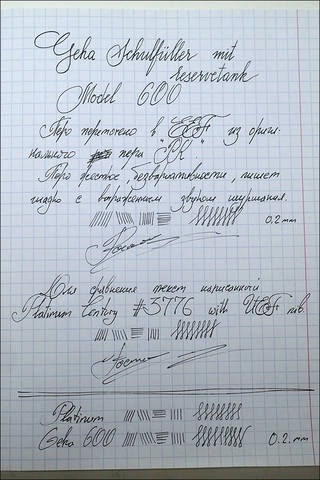 Geha Schulfüller mit
reservetank
Model 600
Перо переточено в EEF из ориги-
нального пера "RR"
Перо жесткое, безвариативности, пишет
гладко с выраженным звуком шуршания.
0.2 mm
Для сравнения текст написанный
Platinum Century #3776 with UEF nib.
Platinum
Geha 600 0.2. mm